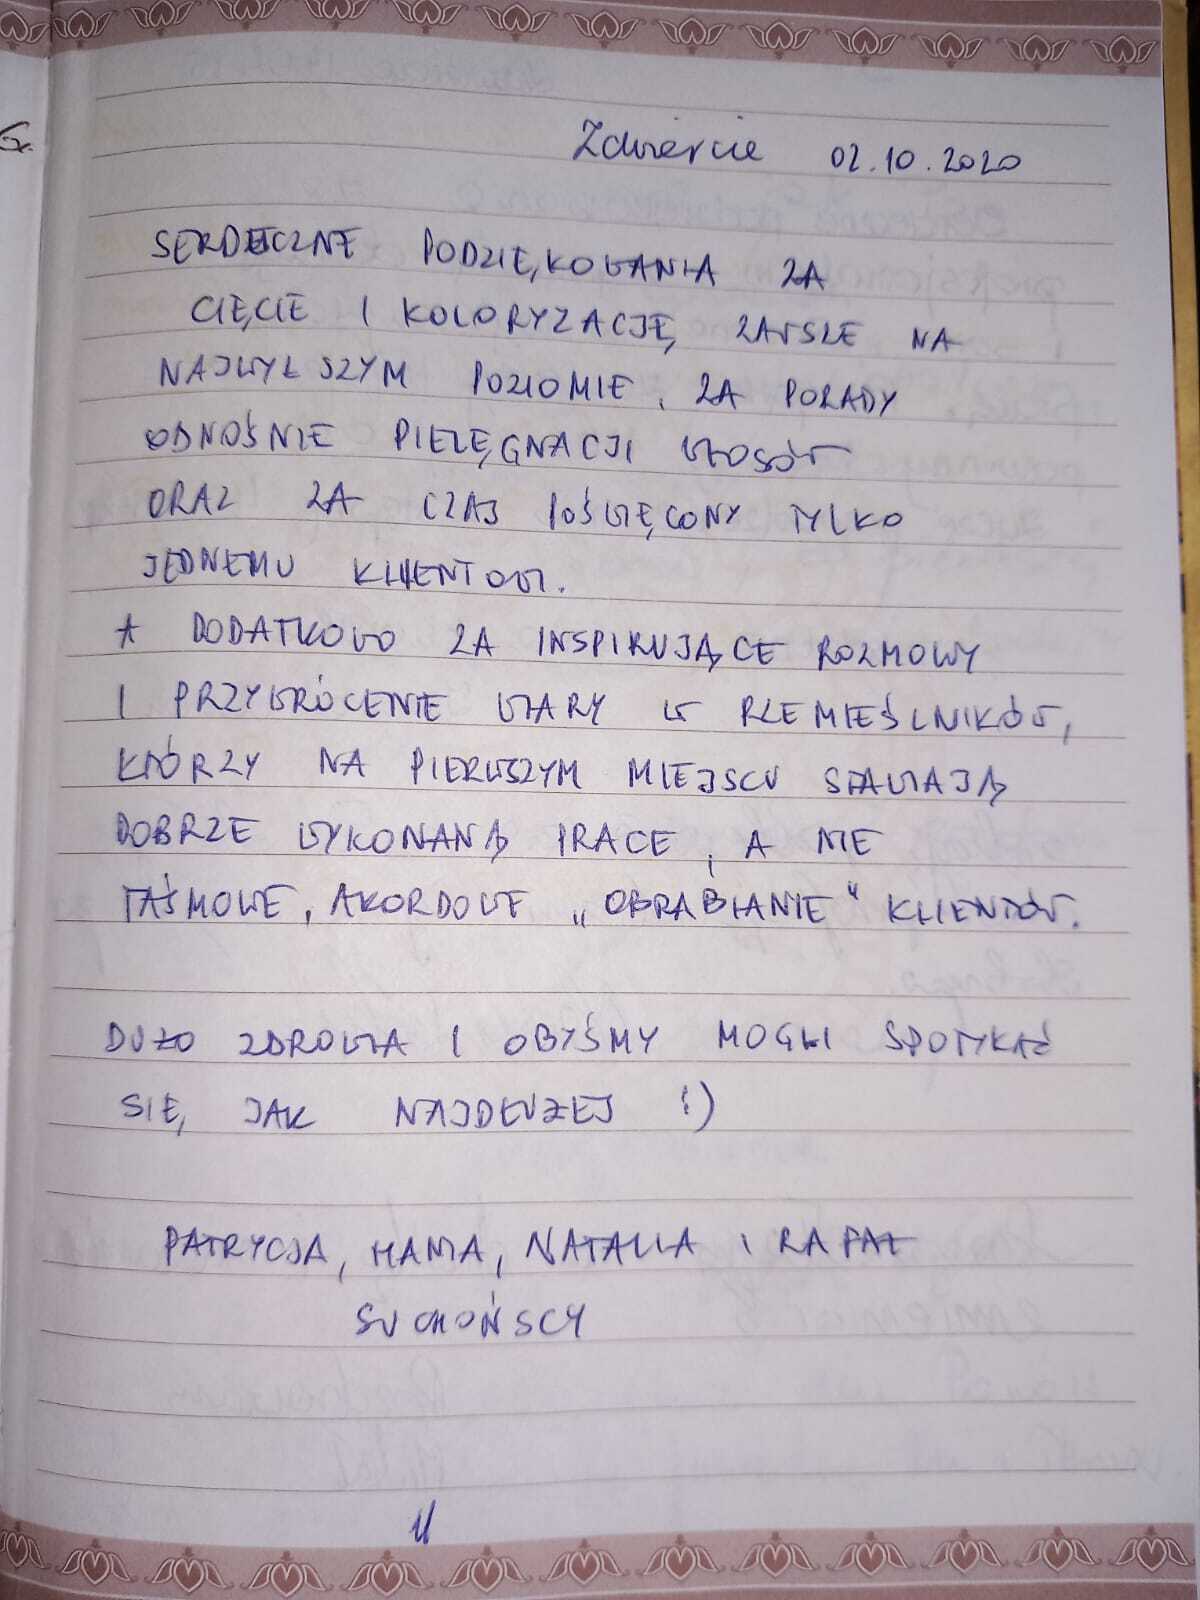 Zawiercie 02.10.2020
SERDECZNE PODZIĘKOWANIA ZA
CIĘCIE I KOLORYZACJĘ ZAWSZE NA
NAJWYŻSZYM POZIOMIE, ZA PORADY
ODNOŚNIE PIELĘGNACJI WŁOSÓW
ORAZ ZA CZAS POŚWIĘCONY TYLKO
JEDNEMU KLIENTOWI.
A DODATKOWO ZA INSPIRUJĄCE ROZMOWY
I PRZYWRÓCENIE WIARY W RZEMIEŚLNIKÓW,
KTÓRZY NA PIERWSZYM MIEJSCU STAWIAJĄ
DOBRZE WYKONANĄ PRACE, A NIE
TAŚMOWE, AKORDOWE „OBRABIANIE" KLIENTÓW.
DUŻO ZDROWIA I OBYŚMY MOGLI SPOTYKAĆ
SIĘ, JAK NAJDŁUŻEJ :)
PATRYCJA, HANIA, NATALIA I RAFAŁ
SUCHOŃSCY